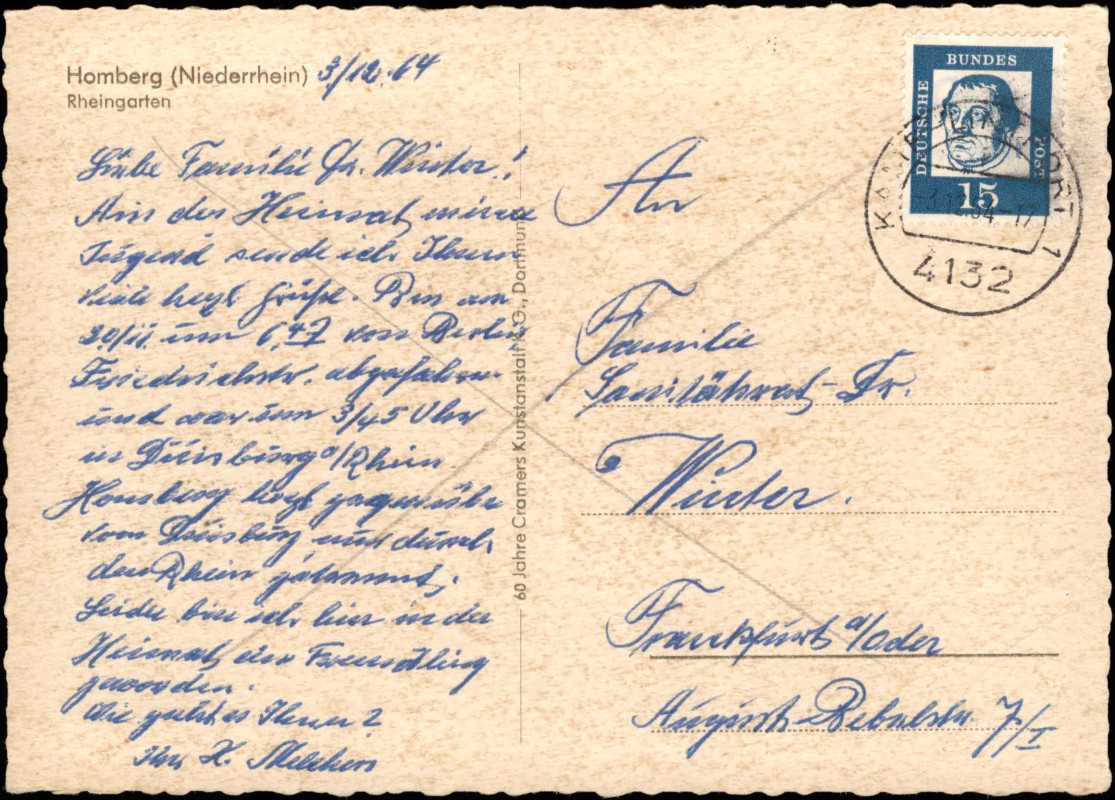 Homberg (Niederrhein) 3/12.64
Rheingarten
Liebe Familie Dr. Winter!
Aus der Heimat meiner
Jugend sende ich Ihnen
viele herzl. Grüße. Bin am
20/11. um 6,47 von Berlin
Friedrichstr. abgefahren
und war um 3/45 Uhr
in Duisburg a/Rhein.
Homberg liegt gegenüber
von Duisburg und durch
den Rhein getrennt.
Leider bin ich hier in der
Heimat ein Fremdling
geworden.
Wie geht es Ihnen?
Ihr H. Melchers
60 Jahre Cramers Kunstanstalt KG., Dortmund
DEUTSCHE
BUNDES
POST
15
3.12.64-17
1
4132
An
Familie
Sanitätsrat-Dr.
Winter.
Frankfurt a/Oder
August-Bebelstr. 7/I